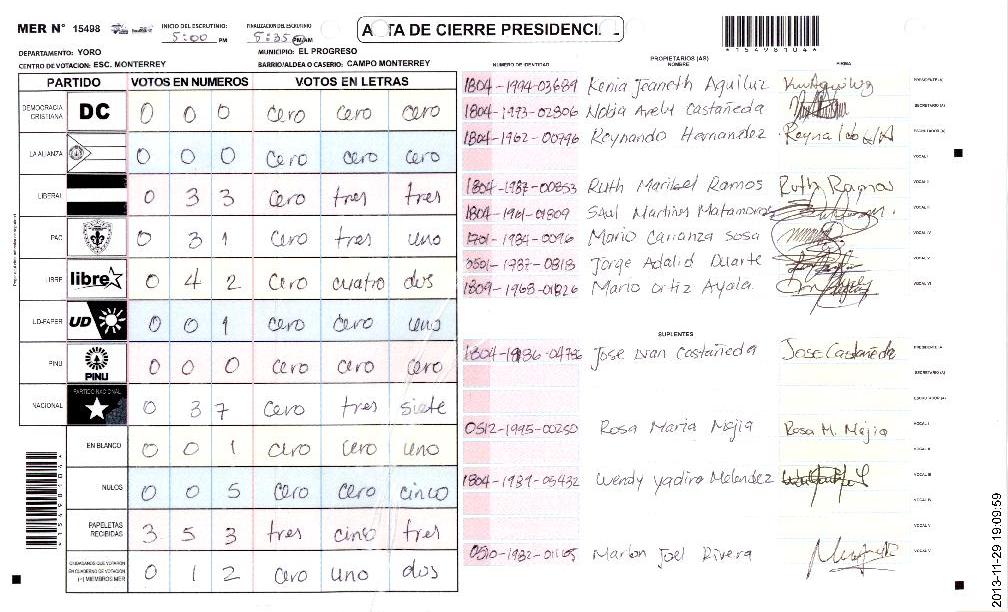 MER N° 15498
INICIO DEL ESCRUTINIO:
5:00 PM
FINALIZACION DEL ESCRUTINIO
5:35 PM
ACTA DE CIERRE PRESIDENCIAL
*15498104*
DEPARTAMENTO: YORO
MUNICIPIO: EL PROGRESO
CENTRO DE VOTACION: ESC. MONTERREY
BARRIO/ALDEA O CASERIO: CAMPO MONTERREY
PARTIDO VOTOS EN NUMEROS VOTOS EN LETRAS
DEMOCRACIA CRISTIANA DC 0 0 0 Cero Cero Cero
LA ALIANZA 0 0 0 Cero Cero Cero
LIBERAL 0 3 3 Cero tres tres
PAC 0 3 1 Cero tres uno
LIBRE libre 0 4 2 Cero cuatro dos
UD-FAPER UD 0 0 1 Cero Cero uno
PINU PINU 0 0 0 Cero Cero Cero
NACIONAL PARTIDO NACIONAL 0 3 7 Cero tres siete
EN BLANCO 0 0 1 Cero Cero uno
NULOS 0 0 5 Cero Cero cinco
PAPELETAS RECIBIDAS 3 5 3 tres cinco tres
CIUDADANOS QUE VOTARON EN CUADERNO DE VOTACION (+) MIEMBROS MER 0 1 2 Cero uno dos
PROPIETARIOS (AS)
NUMERO DE IDENTIDAD NOMBRE FIRMA
1804-1994-03689 Kenia Joaneth Aguiluz PRESIDENTE(A)
1804-1973-02806 Nobia Arely Castañeda SECRETARIO(A)
1804-1962-00796 Reynando Hernandez ESCRUTADOR(A)
VOCAL I
Ruth Maribel Ramos Ruth Ramos VOCAL II
Saul Martinez Matamoros
Mario Carianza Sosa VOCAL IV
Jorge Adalid Duarte VOCAL V
Mario Ortiz Ayala VOCAL VI
SUPLENTES
Jose Ivan Castañeda Jose Castañeda PRESIDENTE A
SECRETARIO (A)
ESCRUTADOR (A)
VOCAL I
0512-1995-00250 Rosa Maria Mejia Rosa M. Mejia
VOCAL II
Wendy Yadira Melendez VOCAL III
VOCAL IV
VOCAL V
Marlon Joel Rivera
2013-11-29 19:09:59